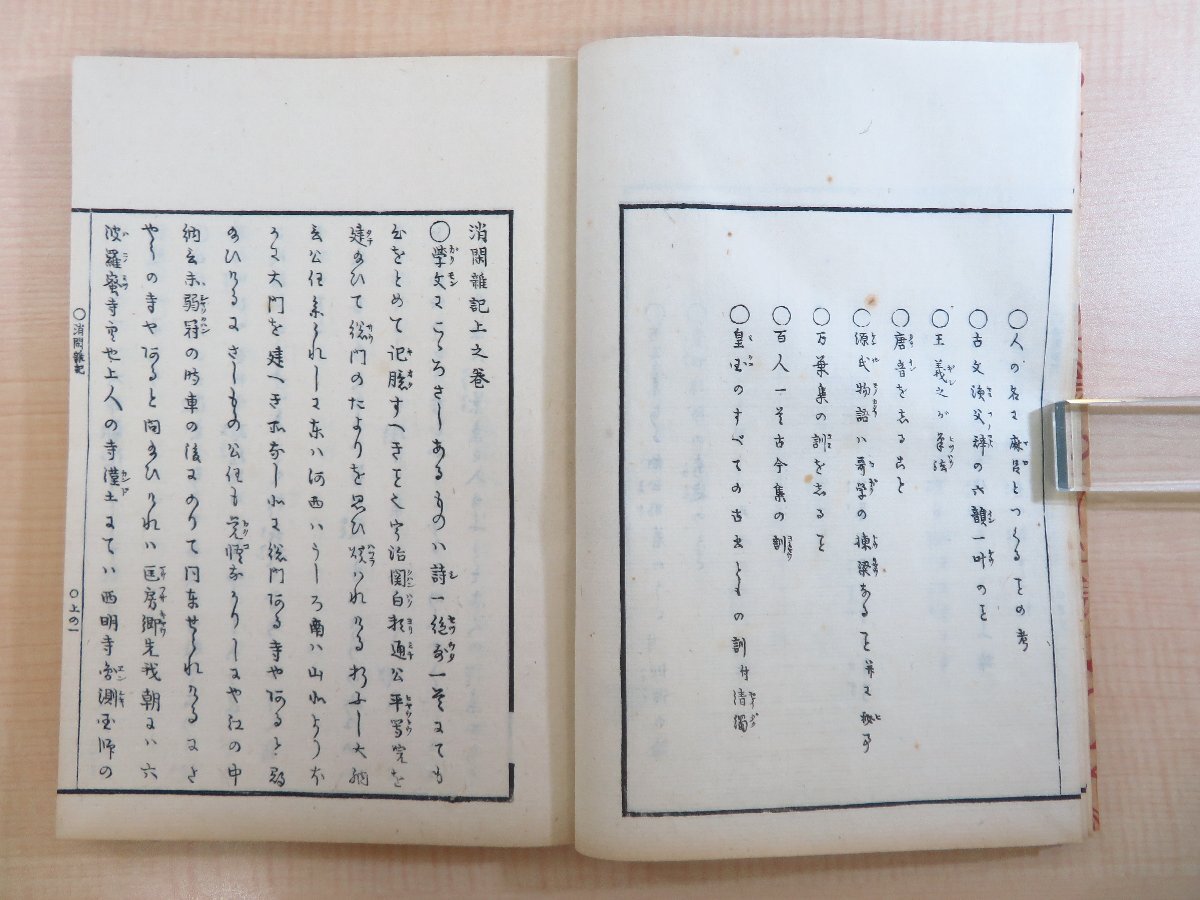 〇人の名に麻呂とつくることの考
〇古文漁父辞の六韻一叶のこと
〇王羲之が筆法
〇唐音をしること
〇源氏物語ハ哥学の棟梁あること并に秘事
〇万葉集の訓をしること
〇百人一首古今集の訓
〇皇国のすべての古書どもの訓付清濁
消閑雜記上之巻
〇学文にこゝろざしあるものハ詩一絶哥一首にても
心をとめて記臆すへきこと也宇治関白頼通公平等院を
建給ひて総門のたよりを思ひ煩はれける折ふし大納
言公任参られしに東ハ河西ハうしろ南ハ山北より
に大門を建へき所なし北に総門ある寺やあると
給ひけるにさしもの公任も覚悟なかりしにや江の中
納言未弱冠の時車の後にのりて同車せられけるにさ
やうの寺やあると問給ひけれハ匡房卿先我朝にハ六
波羅蜜寺空也上人の寺漢土にてハ西明寺円測国師の
〇消閑雜記
〇上の一